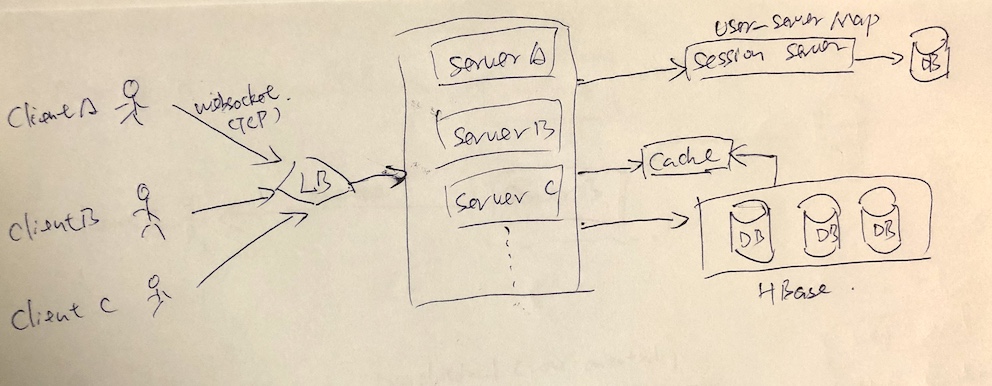 Client A
websocket.
(TCP)
Client B
Client C
LB
Server A
Server B
Server C
User-server Map
Session server
DB
Cache
DB
DB
DB
HBase.